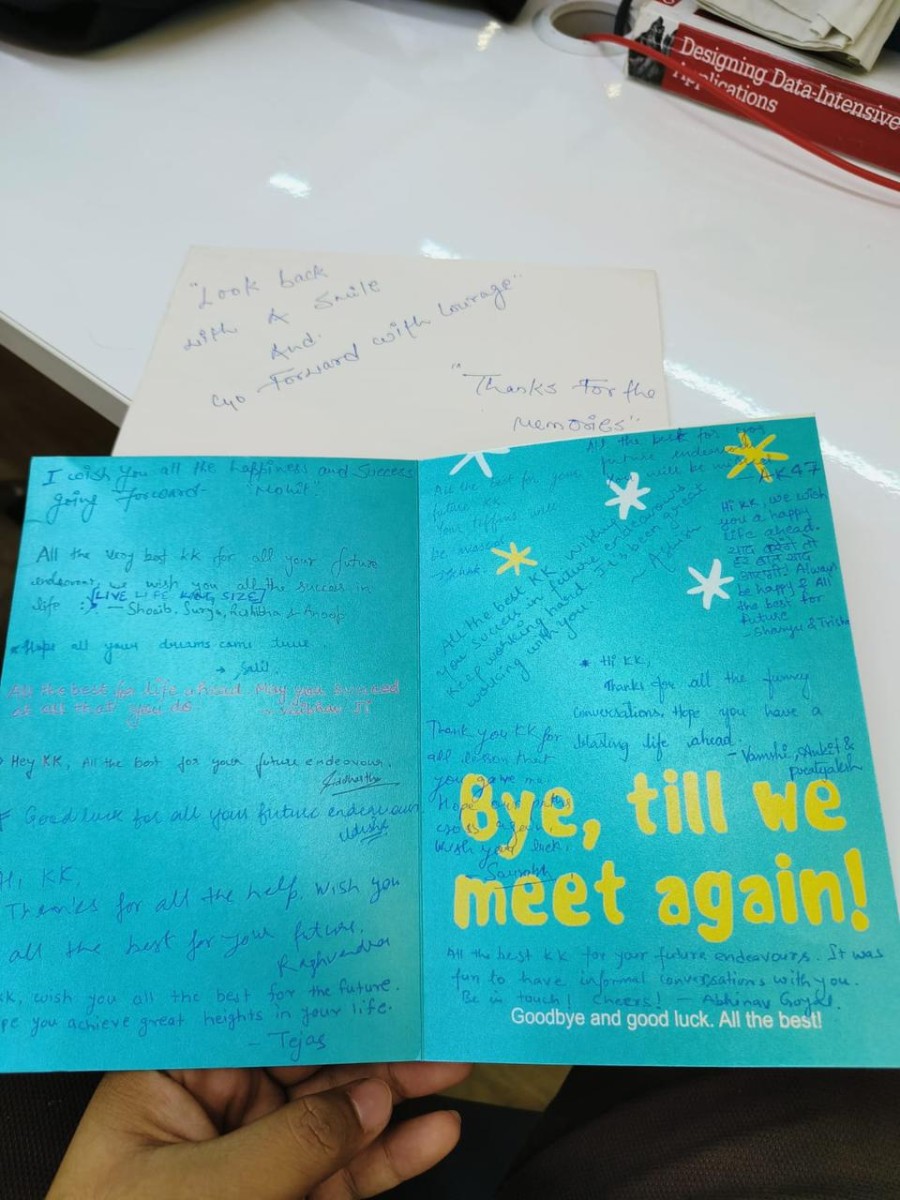 Designing Data-Intensive
Applications
"Look back
with A Smile
And.
Go Forward with Courage"
"Thanks For the
Memories"
I wish You all the happiness and Success
going Forward- "Mohit"
All the very best KK for all your future
endeavour, we wish you all the success in
life :) LIVE LIFE KING SIZE
— Shoaib, Surya, Rishibha & Anoop
Hope all your dreams come true
→ Salil
All the best for life ahead. May you succeed
at all that you do.
Hey KK, All the best for your future endeavour.
Sidhartha
Good luck for all your future endeavours
Hi, KK,
Thanks for all the help. Wish you
all the best for your future.
Raghvendra
KK, wish you all the best for the future.
Hope you achieve great heights in your life.
- Tejas
All the best for your
future endeavours
You will be missed
- AK47
All the best for your
future KK.
Your tiffins will
be missed
Hi KK, we wish
you a happy
life ahead.
Always
be happy & All
the best for
future
- Shanyu & Trisha
All the best KK, wishing
you success in future endeavours
Keep working hard. It's been great
working with you.
- Ashish
* Hi KK,
Thanks for all the funny
conversations, Hope you have a
blasting life ahead.
- Vamshi, Ankit &
Thank you KK for
all lesson that
you gave me.
Hope our paths
cross again.
Wish you luck.
- Saurabh
Bye, till we
meet again!
All the best KK for your future endeavours. It was
fun to have informal conversations with you.
Be in touch! Cheers! — Abhinav Goyal
Goodbye and good luck. All the best!